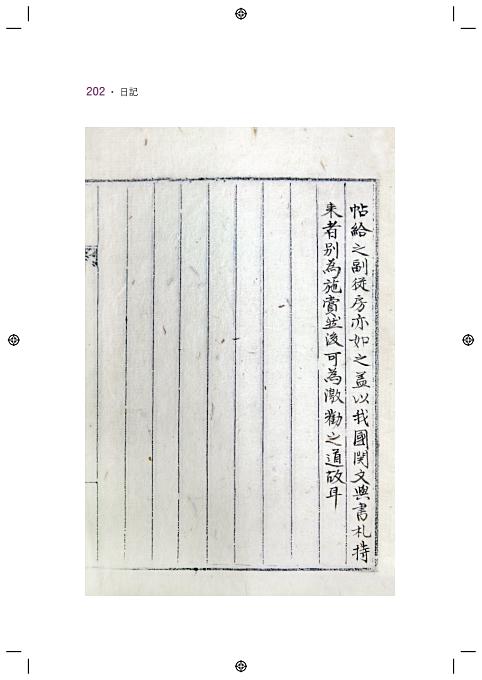 202 • 日記
帖給之副從房亦如之盖以我國関文與書札持
来者别為施賞然後可為激勸之道故耳